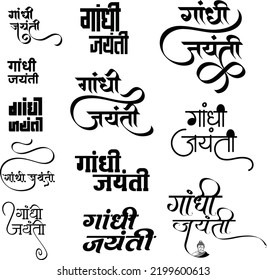 गांधी
जयंती
गांधी
जयंती
गांधी
जयंती
गांधी
जयंती
गांधी
जयंती
गांधी
जयंती
गांधी जयंती
गांधी
जयंती
गांधी
जयंती
गांधी
जयंती
गांधी
जयंती
गांधी
जयंती
shutterstock.com · 2199600613